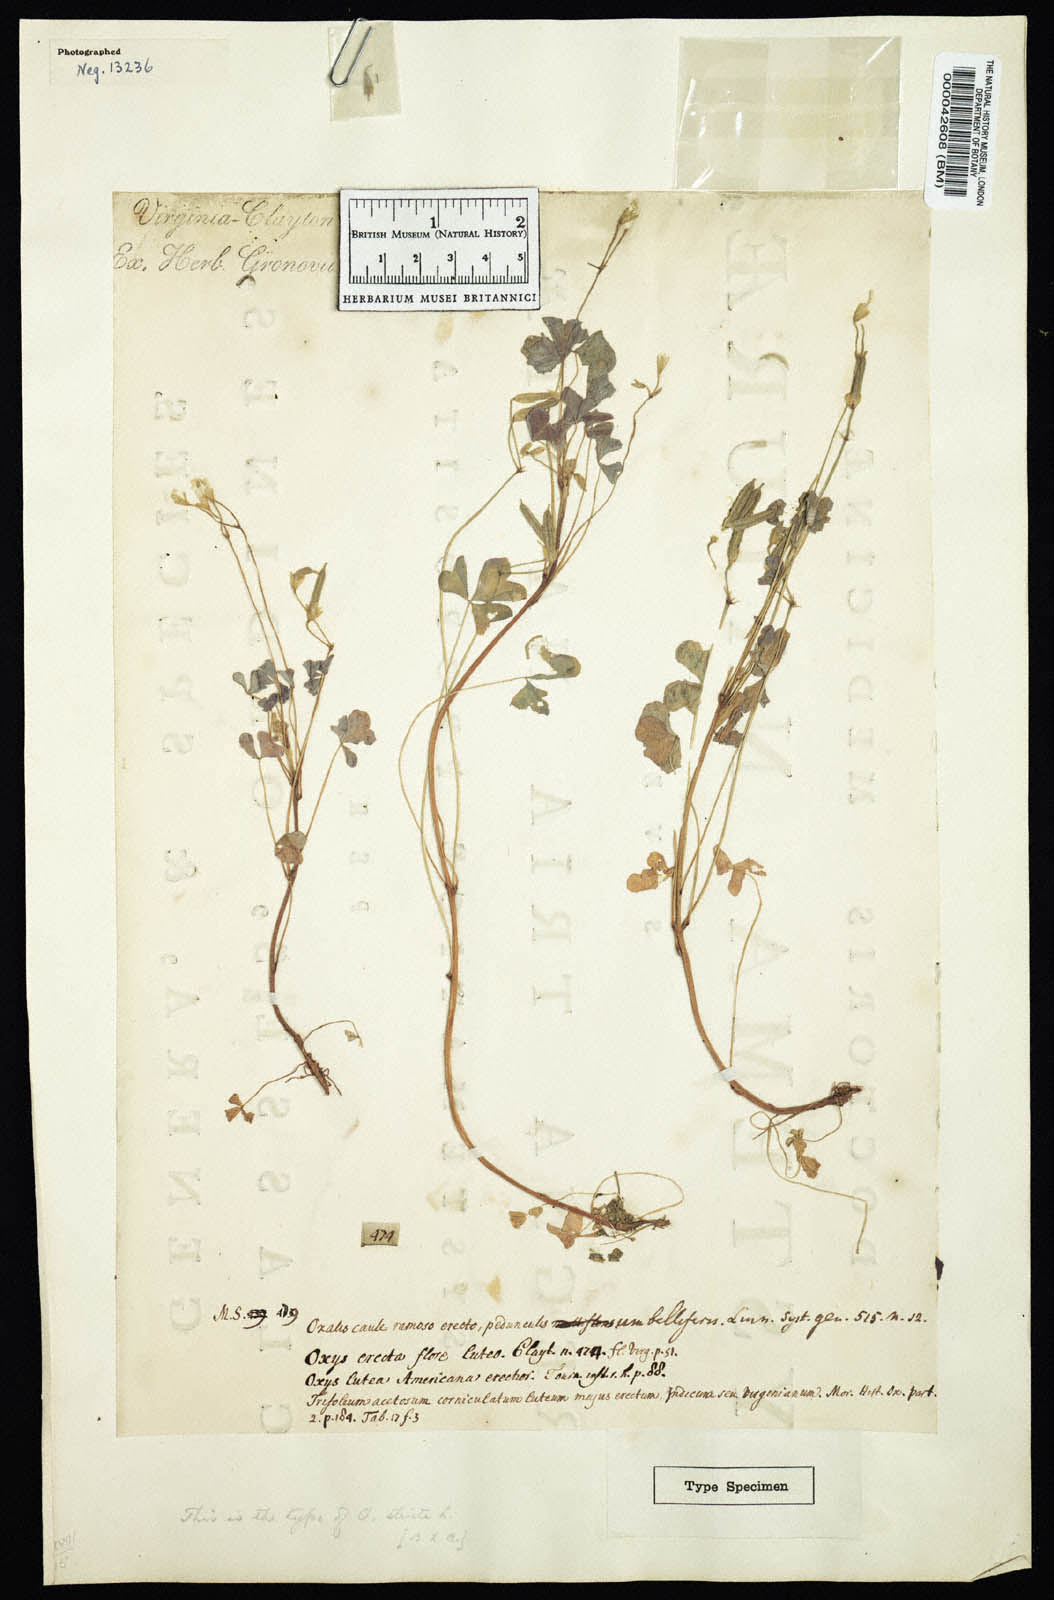 Photographed
Neg. 13236
THE NATURAL HISTORY MUSEUM, LONDON
DEPARTMENT OF BOTANY
000042608 (BM)
Virginia - Clayton
Ex. Herb. Gronovii
1 2
BRITISH MUSEUM (NATURAL HISTORY)
1 2 3 4 5
HERBARIUM MUSEI BRITANNICI
GENERA, & SPECIES
474
M.S.
Oxalis caule ramoso erecto, pedunculis umbelliferis. Linn. Syst. gen. 515. n. 12.
Oxys erecta flore luteo. Clayt. n. 474. fl. Virg. p. 51.
Oxys lutea Americana erectior. Tourn. inst. r. h. p. 88.
Trifolium acetosum corniculatum luteum majus erectum, Indicum seu Virginianum. Mor. Hist. Ox. part.
2. p. 184. Tab. 17 f. 3
Type Specimen
This is the type of O. stricta L.